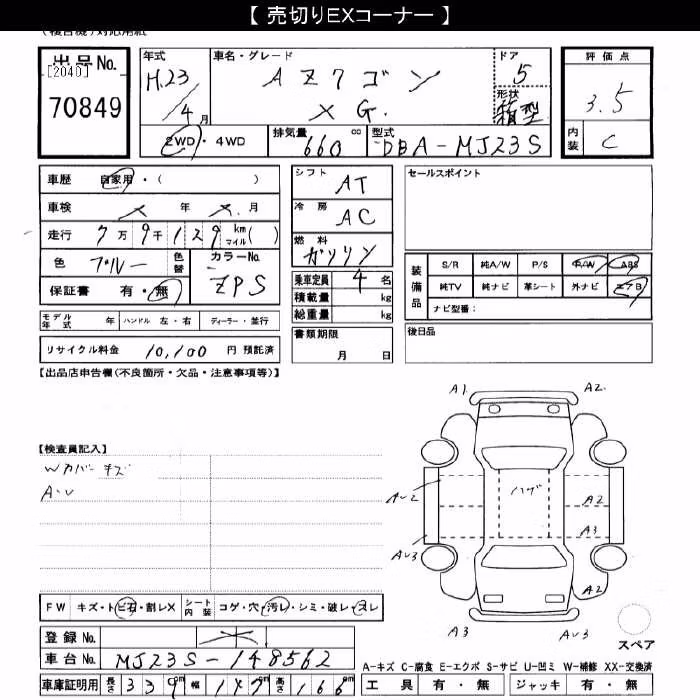 【 売切りEXコーナー 】
(複合機) 対応用紙
出品No.
[2040]
70849
年式
H.23
/4月
車名・グレード
AZワゴン
XG.
ドア
5
形状
箱型
2WD ・ 4WD
排気量
660 cc
型式
DBA-MJ23S
評価点
3.5
内装
C
車歴 自家用・( )
車検 年 月
走行 7万9千129 km(マイル)
色 ブルー 色替
カラーNo.
ZPS
保証書 有・無
シフト
AT
冷房
AC
燃料
ガソリン
乗車定員 4 名
積載量 kg
総重量 kg
セールスポイント
装備品
S/R 純A/W P/S P/W ABS
純TV 純ナビ 革シート 外ナビ エアB
ナビ型番:
モデル年式 年 ハンドル 左・右 ディーラー・並行
リサイクル料金 10,100 円 預託済
書類期限
月 日
後日品
【出品店申告欄(不良箇所・欠品・注意事項等)】
【検査員記入】
Wカバーキズ
A・U
A1 A2
ハゲ
AU2 A2
A3
AU3
A2
A3 AU3
スペア
FW キズ・トビ石・割レX
シート内装 コゲ・穴・汚レ・シミ・破レ・スレ
登録 No.
車台 No. MJ23S-148562
車庫証明用 長さ 339cm 幅 147cm 高さ 166cm
A-キズ C-腐食 E-エクボ S-サビ U-凹ミ W-補修 XX-交換済
工具 有・無 ジャッキ 有・無